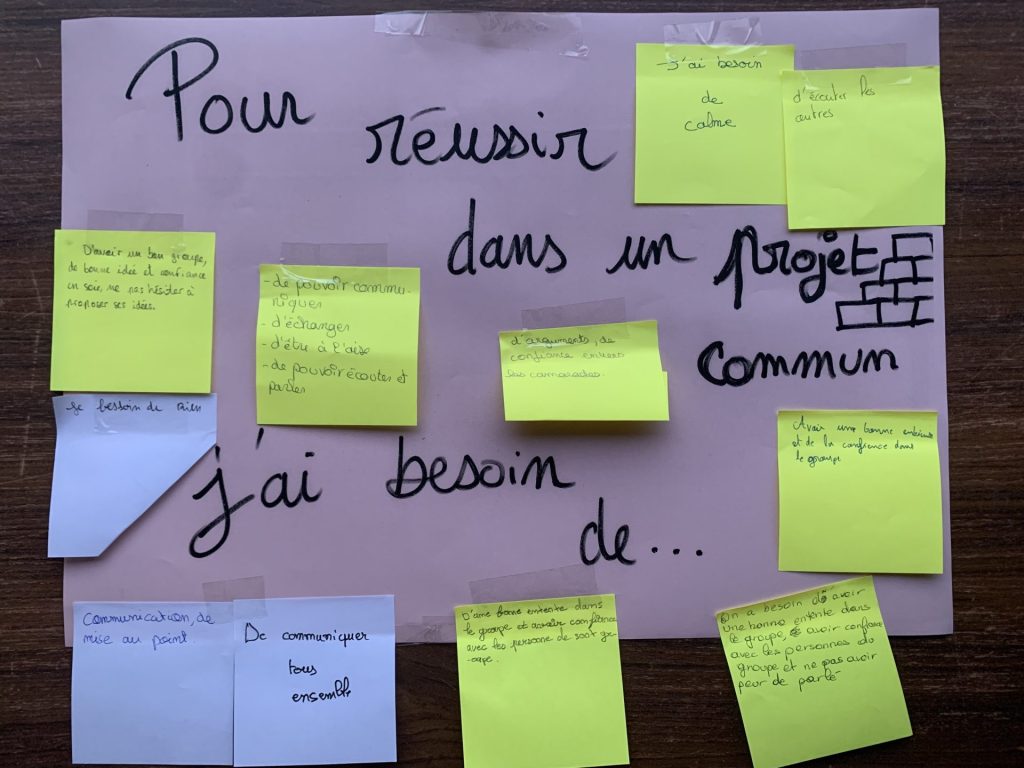 Pour
réussir
dans un projet
commun
j'ai besoin
de...
- J'ai besoin
de
calme
d'écouter les
autres
D'avoir un bon groupe,
de bonne idée et confiance
en soie, ne pas hésiter à
proposer ses idées.
- de pouvoir commu-
niquer
- d'échanger
- d'être à l'aise
- de pouvoir écouter et
parler
d'arguments, de
confiance envers
ses camarades.
Avoir une bonne entente
et de la confiance dans
le groupe
besoin de rien
Communication, de
mise au point.
De communiquer
tous
ensemble
D'une bonne entente dans
le groupe et avoir confience
avec les persone de sont gr-
-oupe.
On a besoin d'avoir
une bonne entente dans
le groupe, avoir confiance
avec les personnes du
groupe et ne pas avoir
peur de parlé